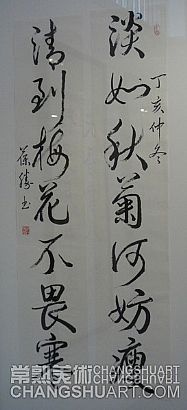 淡如秋菊何妨瘦
丁亥仲冬
清到梅花不畏寒
葆勝书
常熟美術
CHANGSHUART.COM